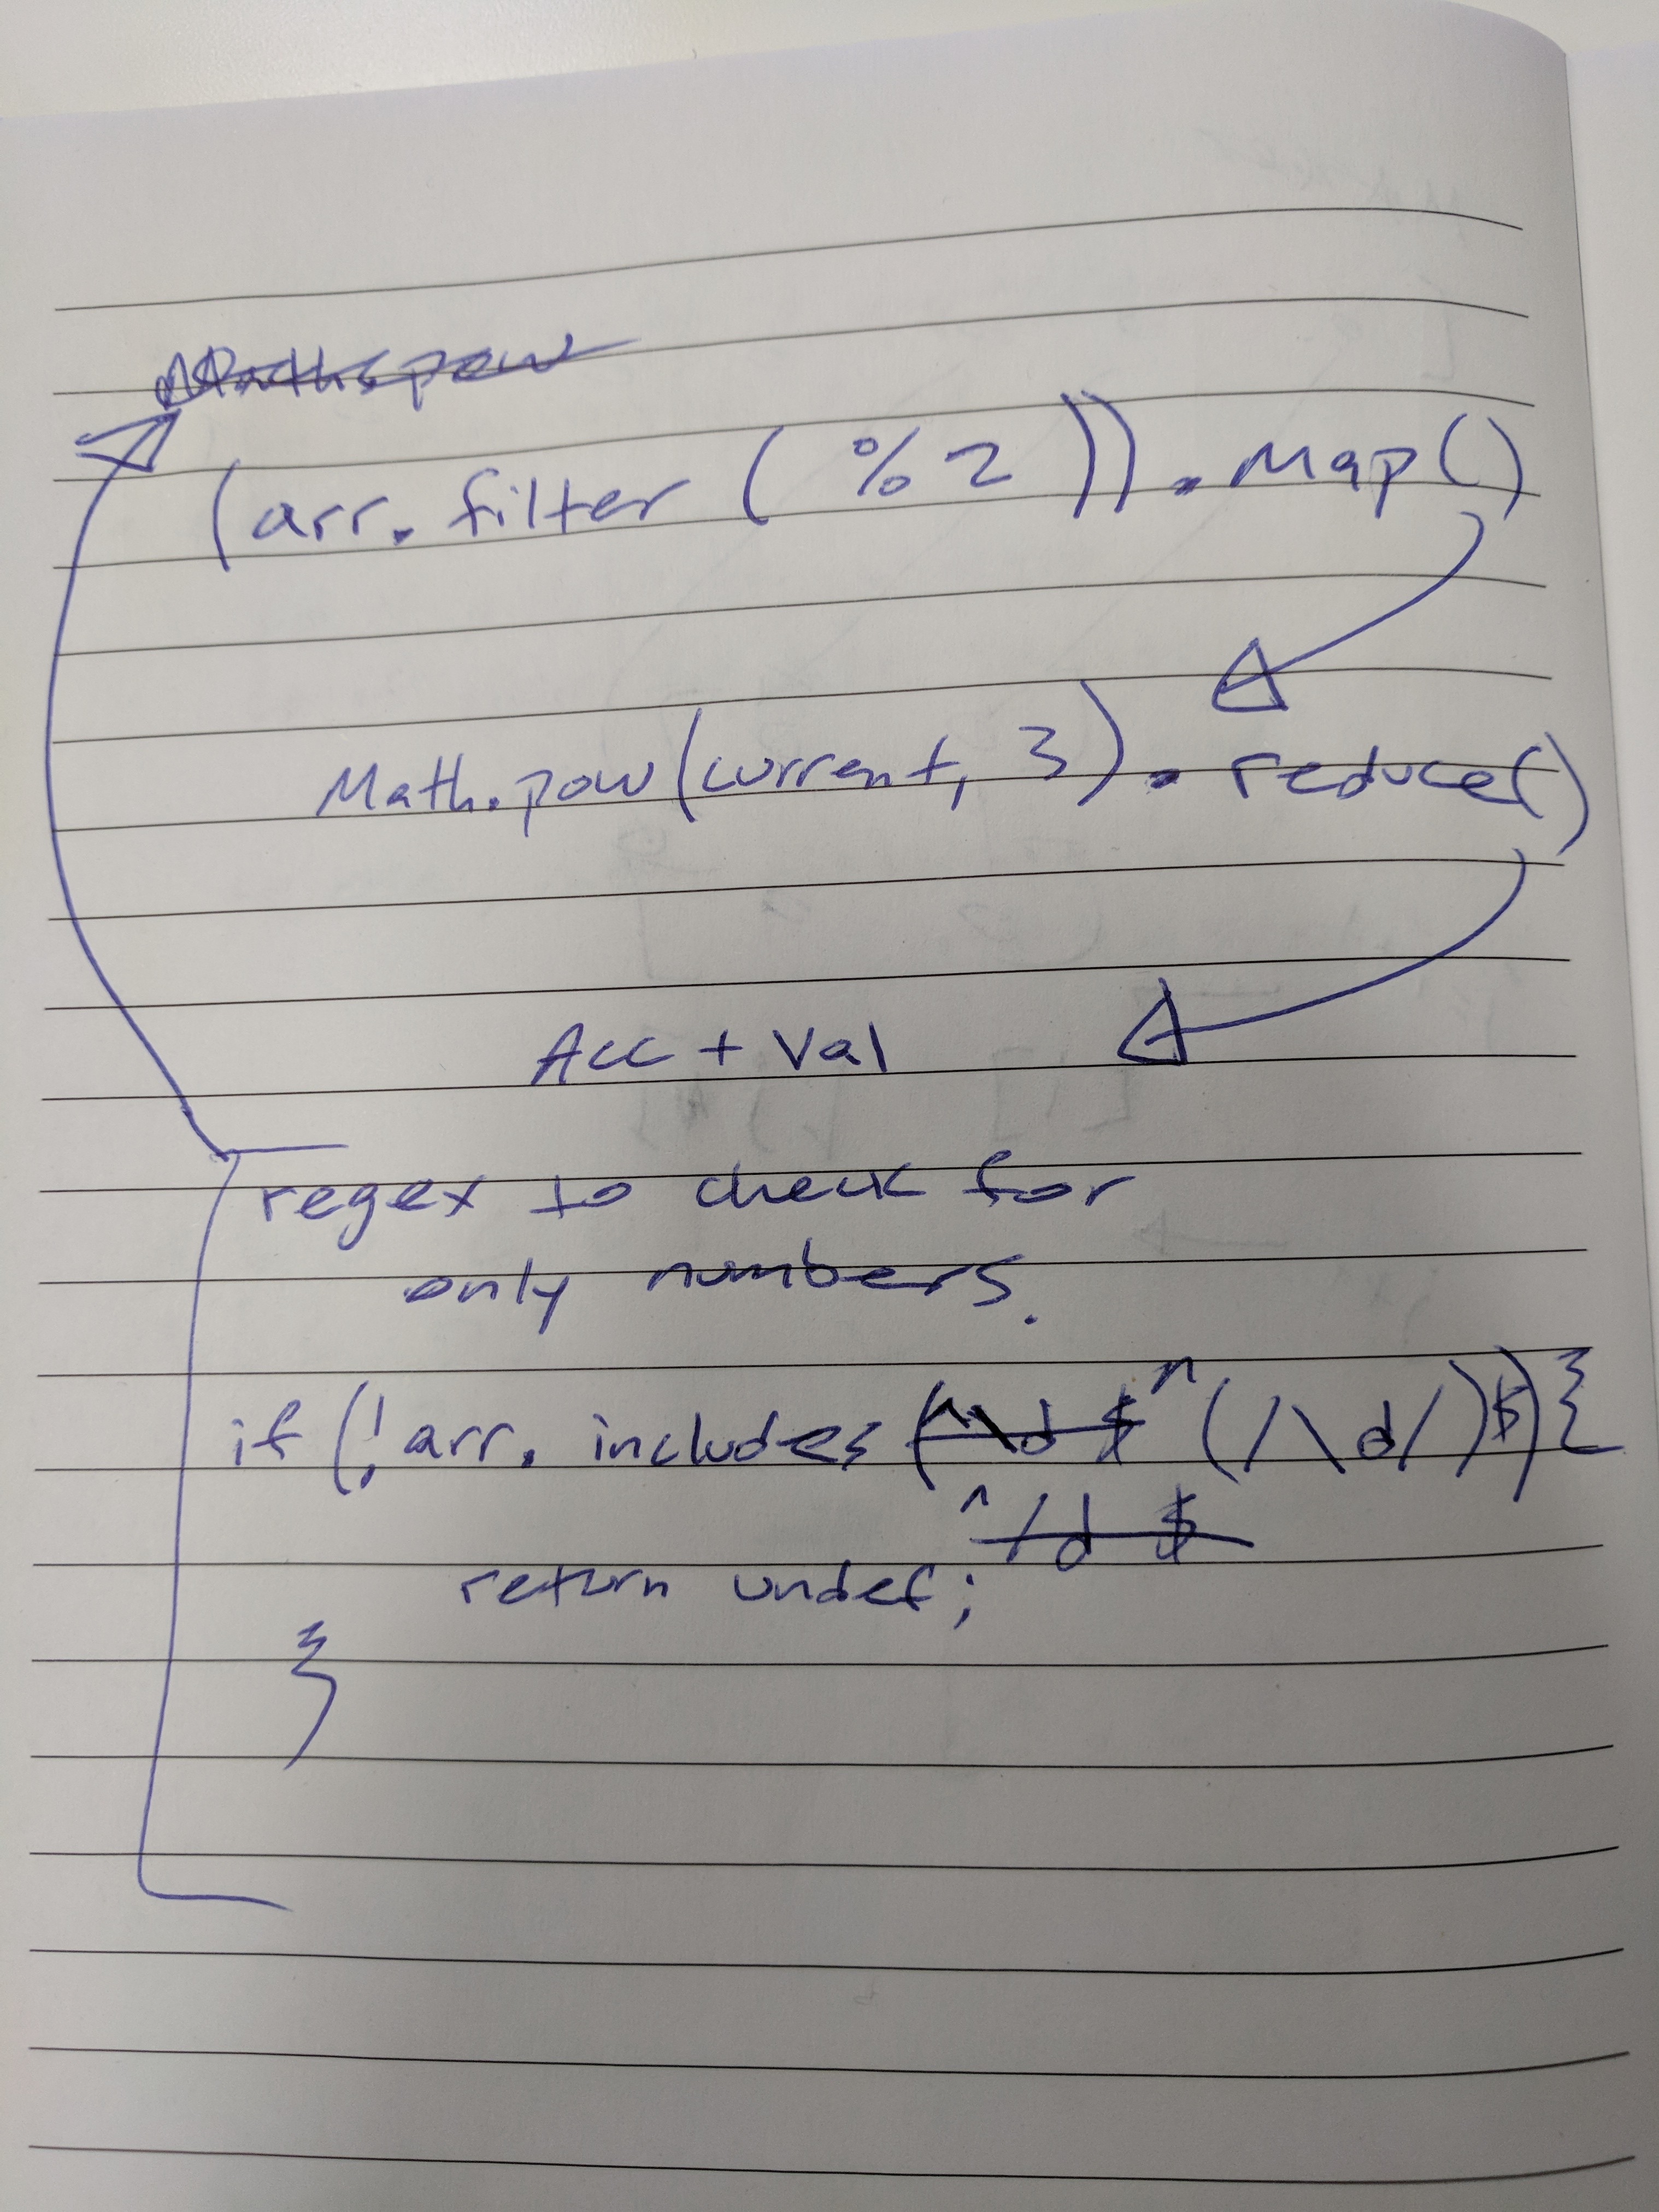 Maths.pow
(arr.filter ( %2 )).Map()
Math.pow(current, 3).reduce()
Acc + Val
regex to check for
only numbers.
if (!arr. includes (^\d $ ^(/\d/)$) {
^/d $
return undef;
}